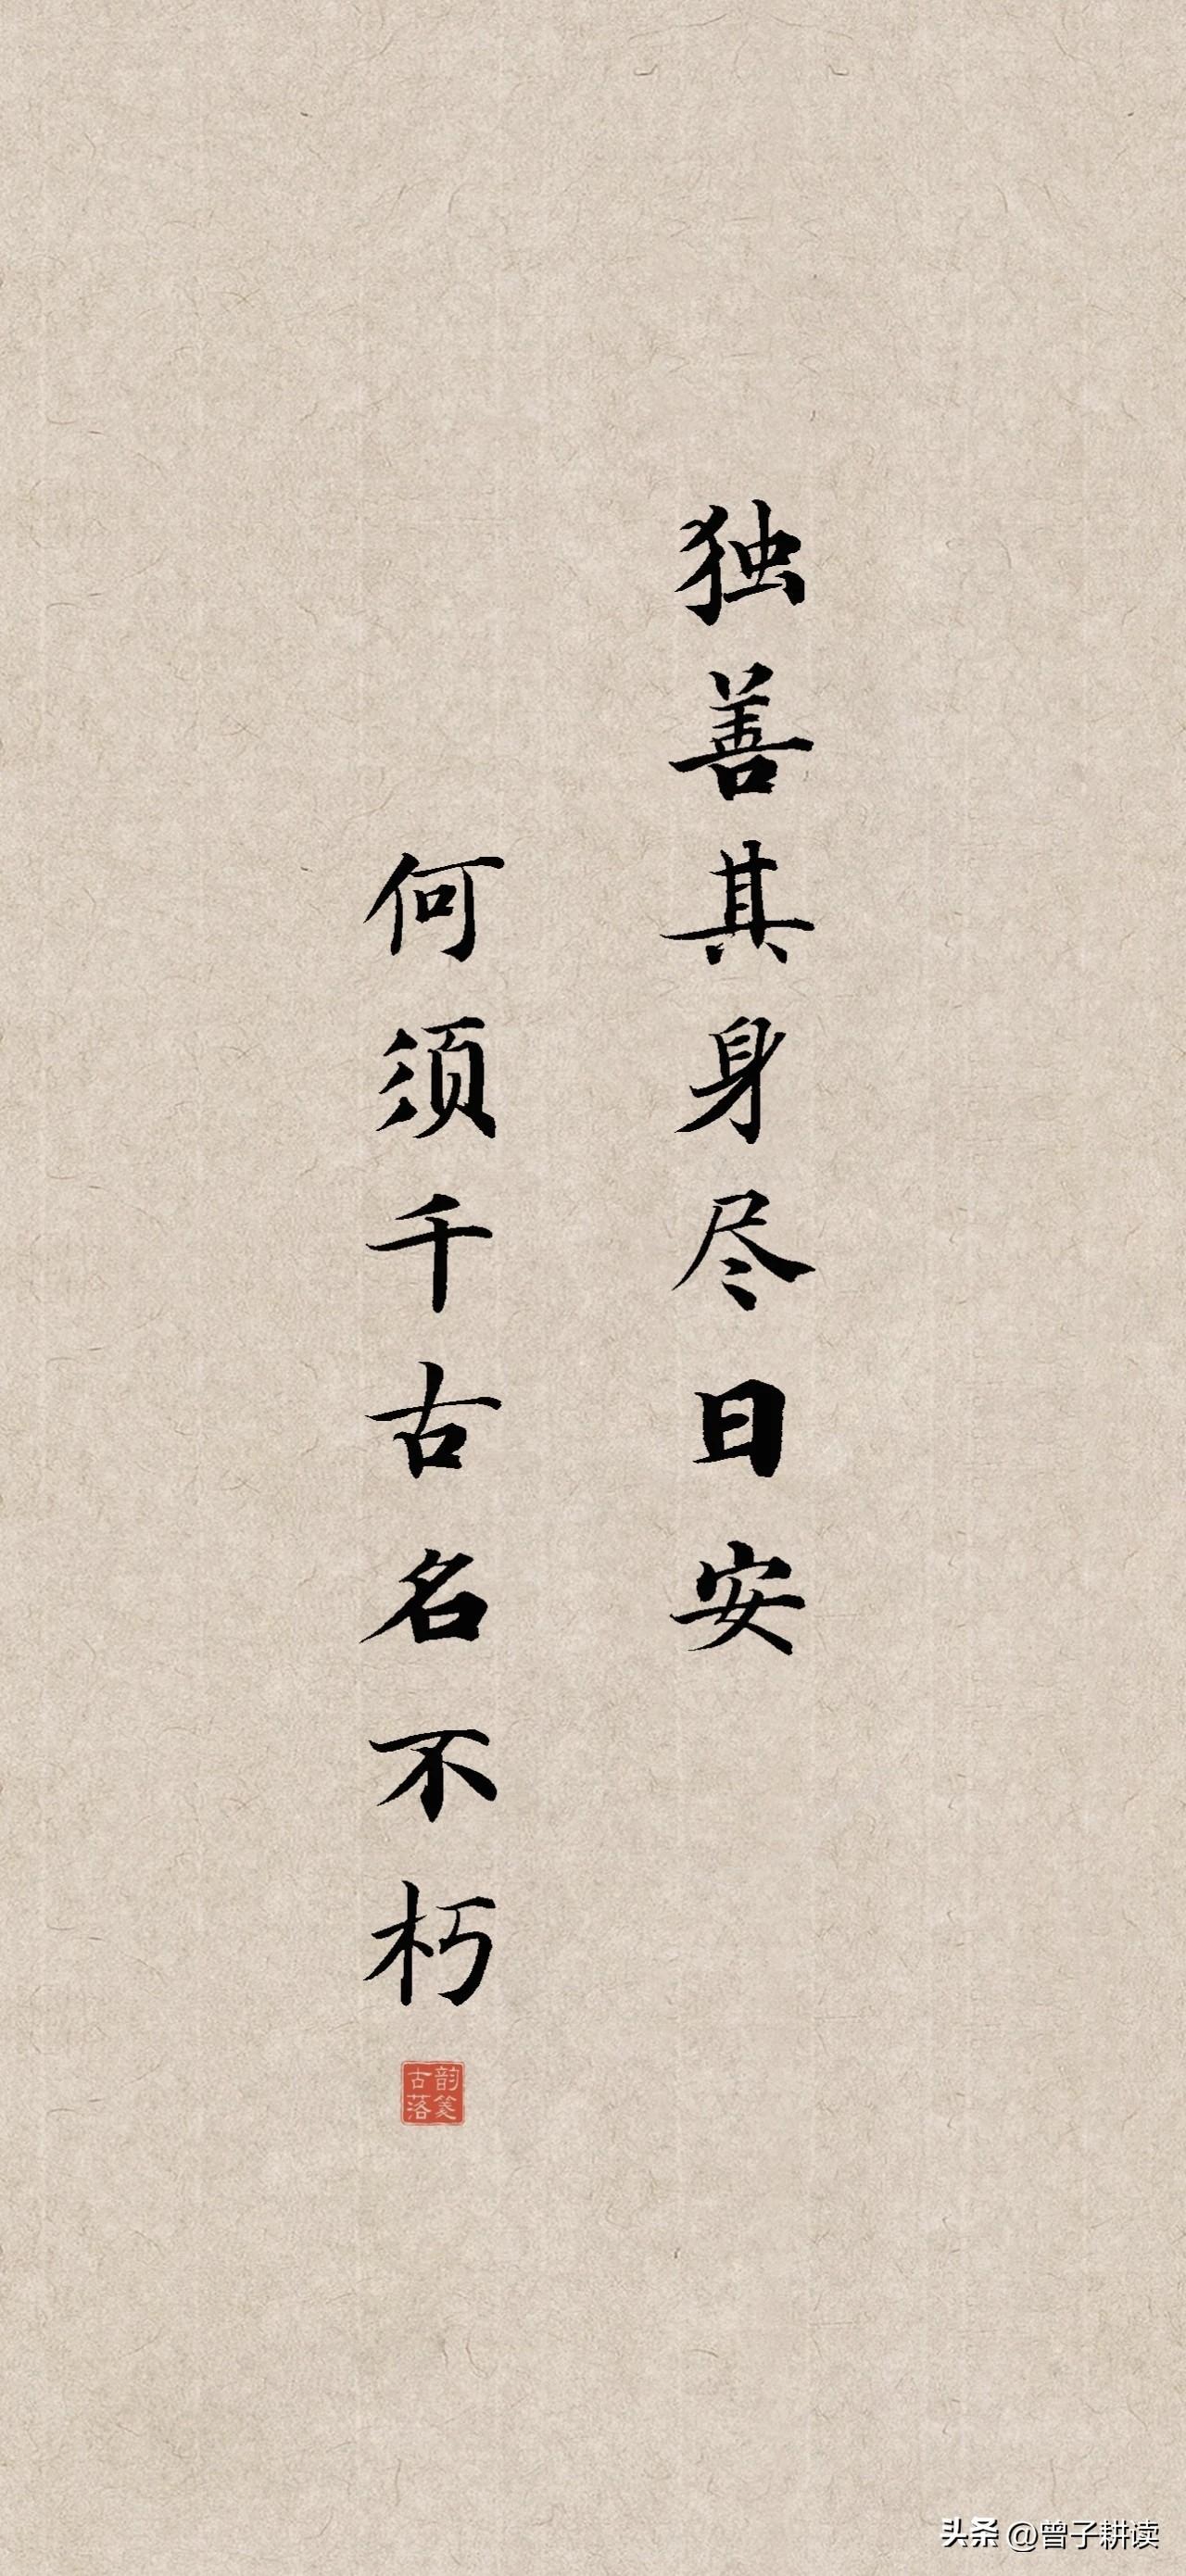 独善其身尽日安
何须千古名不朽
韵笺
古落
头条 @曾子耕读